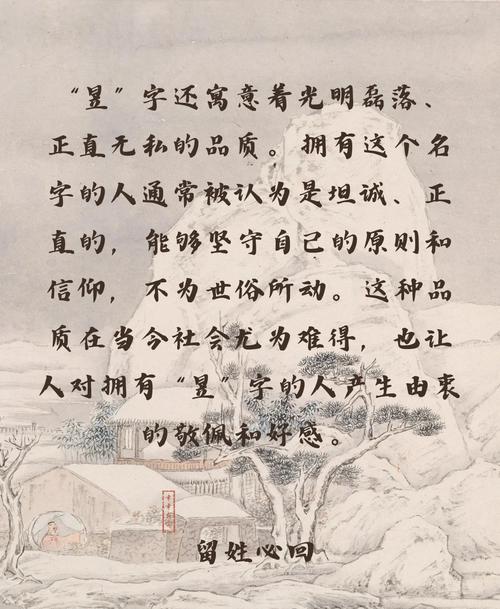 “昱”字还寓意着光明磊落、
正直无私的品质。拥有这个名
字的人通常被认为是坦诚、正
直的，能够坚守自己的原则和
信仰，不为世俗所动。这种品
质在当今社会尤为难得，也让
人对拥有“昱”字的人产生由衷
的敬佩和好感。
留姓必回